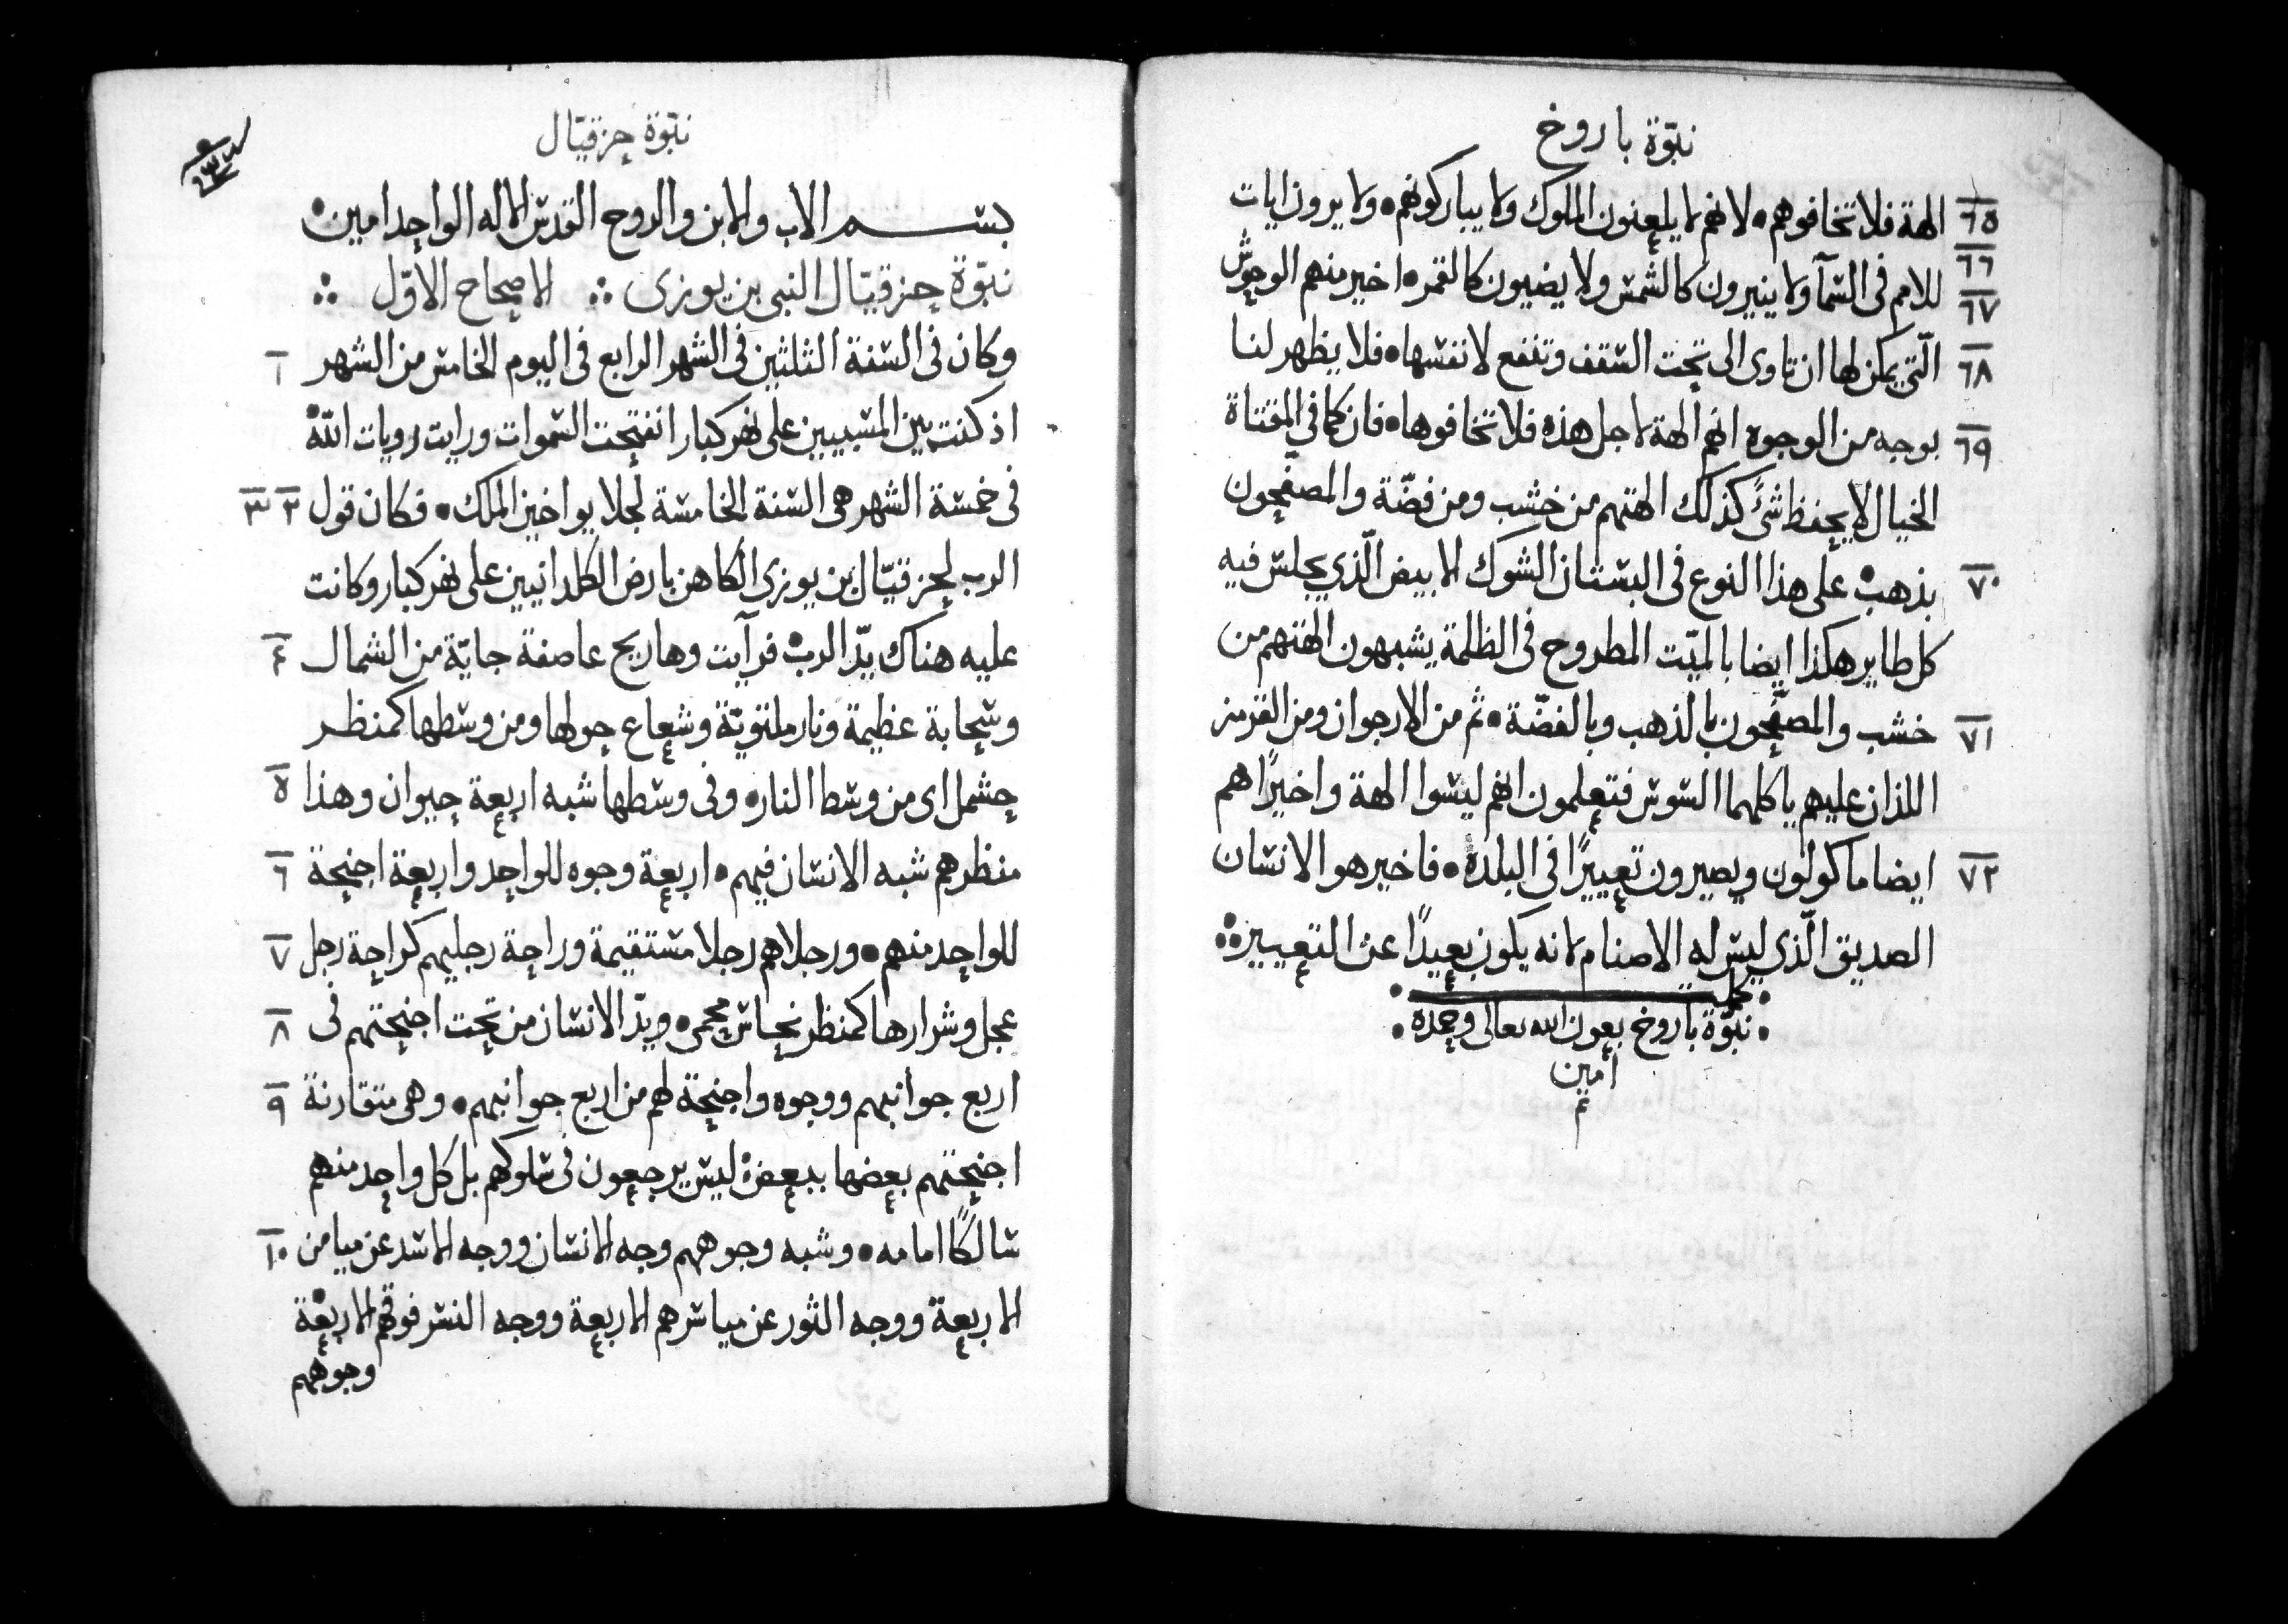 نبوّة باروخ
٦٥ الهة فلا تخافوهم • لانهم لا يلعنون الملوك ولا يباركونهم • ولا يرون ايات
٦٦ ٦٧ للامم فى السمآ ولا ينيرون كالشمس ولا يضيون كالقمر • اخير منهم الوحوش
٦٨ الّتي يمكن لها ان تاوى الى تحت السقف وتنفع لانفسها • فلا يظهر لنا
٦٩ بوجه من الوجوه انهم الهة لاجل هذه فلا تخافوها • فان كما في المقتاة
الخيال لا يحفظ شئً كذلك الهتهم من خشب ومن فضّة والمصفّحون
٧٠ بذهب • على هذا النوع فى البستان الشوك الابيض الّذي يجلس فيه
كل طاير هكذا ايضا بالميّت المطروح فى الظلمة يشبهون الهتهم من
٧١ خشب والمصفّحون بالذهب وبالفضّة • ثم من الارجوان ومن القرمز
اللذان عليهم ياكلهما السوس فتعلمون انهم ليسوا الهة واخيرًا هم
٧٢ ايضا ماكولون ويصيرون تعييرًا فى البلدة • فاخير هو الانسان
الصديق الّذي ليس له الاصنام لانه يكون بعيدًا عن التعيير
كمل
نبوّة باروخ بعون الله تعالى وحمده
امين
تم
نبوّة حزقيّال
بسم الاب والابن والروح القدس الاله الواحد امين •
نبوّة حزقيّال النبى بن يوزى ∴ الاصحاح الاوّل ∴
وكان فى السنة الثلثين فى الشهر الرابع فى اليوم الخامس من الشهر ١
اذ كنت بين المسبيين على نهر كبار انفتحت السموات ورايت رويات الله
فى خمسة الشهر هى السنة الخامسة لجلا يواخين الملك • فكان قول ٢ ٣
الرب لحزقيّال بن يوزى الكاهن بارض الكلدانيين على نهر كبار وكانت
عليه هناك يدّ الرب • فرآيت وها ريح عاصفة جايّة من الشمال ٤
وسحابة عظيمة ونار ملتويّة وشعاع حولها ومن وسطها كمنظر
حشمل اى من وسط النار • وفى وسطها شبه اربعة حيوان وهذا ٥
منظرهم شبه الانسان فيهم • اربعة وجوه للواحد واربعة اجنحة ٦
للواحد منهم • ورجلاهم رجلا مستقيمة وراحة رجليهم كراحة رجل ٧
عجل وشرارها كمنظر نحاس محمى • ويدّ الانسان من تحت اجنحتهم فى ٨
اربع جوانبهم ووجوه واجنحة لهم من اربع جوانبهم • وهى متقارنة ٩
اجنحتهم بعضها ببعض • ليس يرجعون فى سلوكهم بل كل واحد منهم
سالكًا امامه • وشبه وجوههم وجه الانسان ووجه الاسد عن ميامن ١٠
الاربعة ووجه الثور عن مياسرهم الاربعة ووجه النسر فوقهم الاربعة
وجوههم